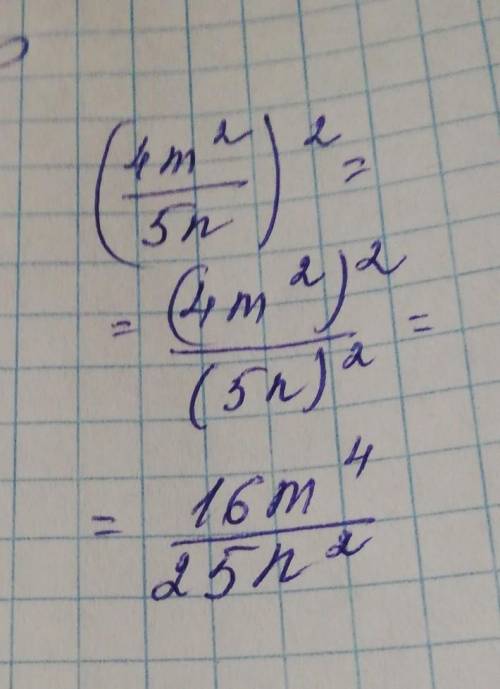 (4m²/5n)² =
= (4m²)²/(5n)² =
= 16m⁴/25n²